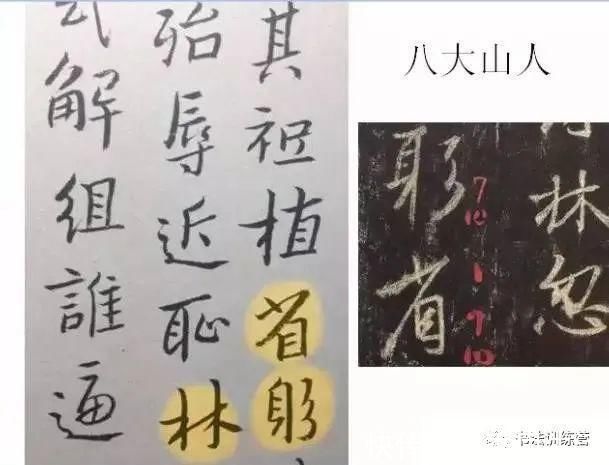 其祗植省躬
殆辱近恥林
解組誰逼
八大山人
林忽
躬省
书法训练营